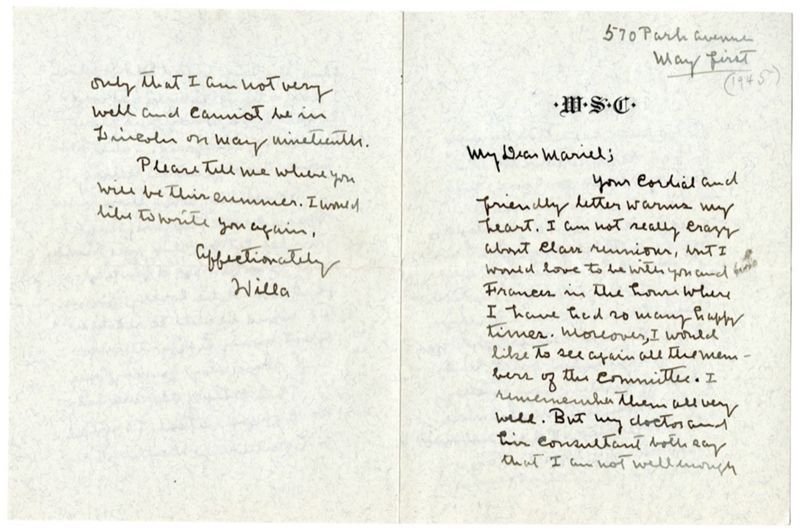 570 Park avenue
May first
(1945)
·W·S·C·
My Dear Mariel;
Your cordial and
friendly letter warms my
heart. I am not really crazy
about Class reunions, but I
would love to be with you and
Frances in the house where
I have had so many happy
times. Moreover, I would
like to see again all the mem-
bers of the Committee. I
rememember them all very
well. But my doctor and
his consultant both say
that I am not well enough
only that I am not very
well and cannot be in
Lincoln on May nineteenth.
Please tell me where you
will be this summer. I would
like to write you again,
Affectionately
Willa